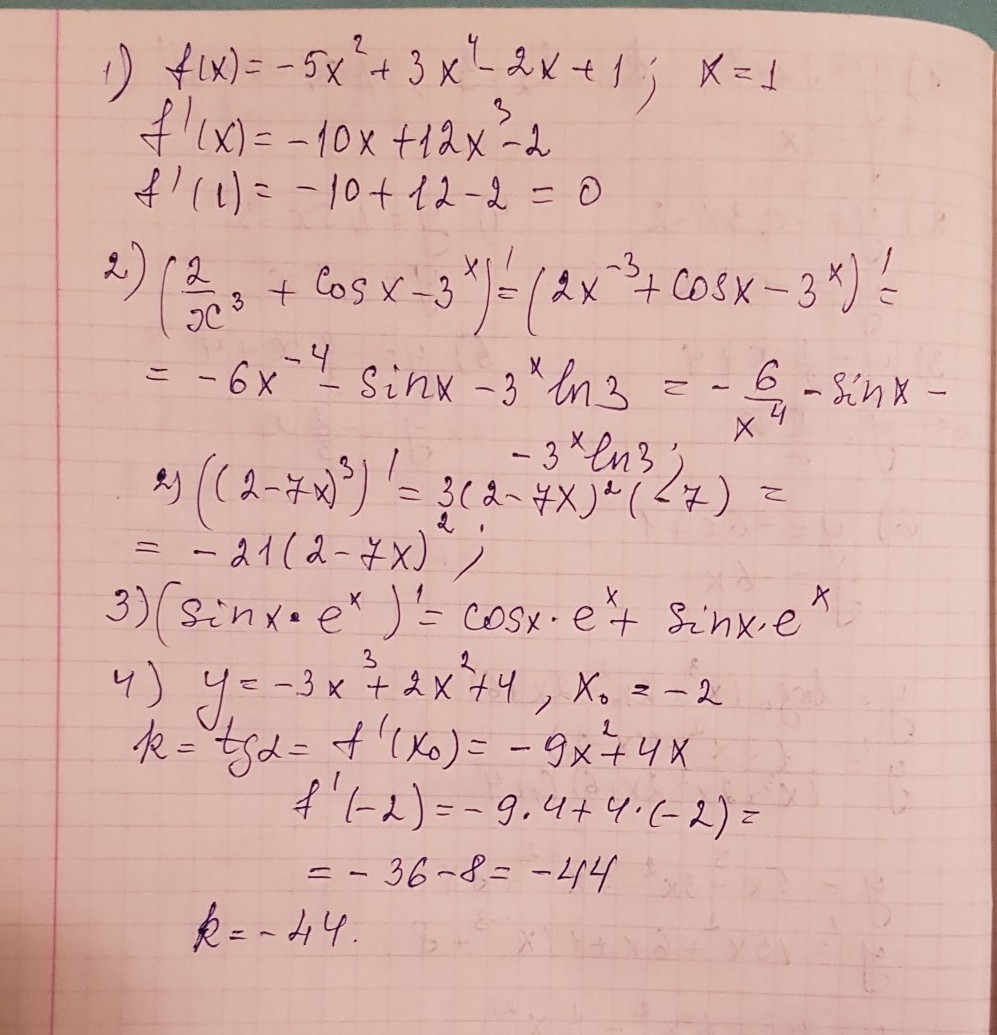 1) f(x) = -5x² + 3x⁴ - 2x + 1 ; x = 1
f'(x) = -10x + 12x³ - 2
f'(1) = -10 + 12 - 2 = 0
2) (2/x³ + cos x - 3ˣ)' = (2x⁻³ + cos x - 3ˣ)' =
= -6x⁻⁴ - sin x - 3ˣ ln 3 = - 6/x⁴ - sin x -
- 3ˣ ln 3 ;
2) ((2-7x)³)' = 3(2-7x)² (-7) =
= -21(2-7x)² ;
3) (sin x · eˣ)' = cos x · eˣ + sin x · eˣ
4) y = -3x³ + 2x² + 4 , x₀ = -2
k = tg α = f'(x₀) = -9x² + 4x
f'(-2) = -9 · 4 + 4 · (-2) =
= -36 - 8 = -44
k = -44.